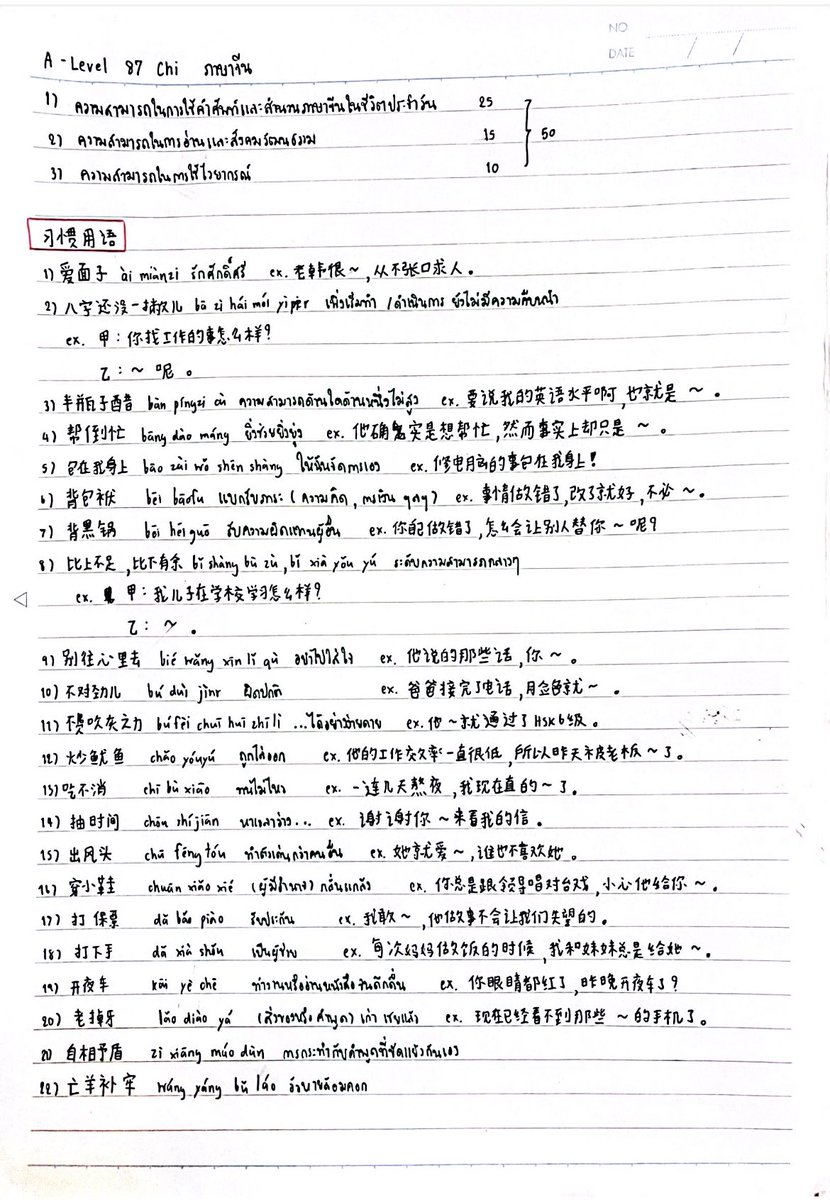 NO
DATE / /
A-Level 87 Chi ภาษาจีน
1) ความสามารถในการใช้คำศัพท์และสำนวนภาษาจีนในชีวิตประจำวัน 25
2) ความสามารถในการอ่านและสังคมวัฒนธรรม 15 50
3) ความสามารถในการใช้ไวยากรณ์ 10
习惯用语
1) 爱面子 ài miànzi รักศักดิ์ศรี ex. 老韩很~,从不张口求人。
2) 八字还没一撇儿 bā zì hái méi yìpiěr เพิ่งเริ่มทำ /ดำเนินการ ยังไม่มีความคืบหน้า
ex. 甲:你找工作的事怎么样?
乙:~ 呢 。
3) 半瓶子醋 bàn píngzi cù ความสามารถด้านใดด้านหนึ่งไม่สูง ex. 要说我的英语水平啊,也就是 ~ 。
4) 帮倒忙 bāng dào máng ยิ่งช่วยยิ่งยุ่ง ex. 他确实是想帮忙,然而事实上却只是 ~ 。
5) 包在我身上 bāo zài wǒ shēn shàng ให้ฉันจัดการเอง ex. 修电脑的事包在我身上!
6) 背包袱 bēi bāofu แบกรับภาระ (ความคิด, ) ex. 事情做错了,改了就好,不必~。
7) 背黑锅 bēi hēi guō รับความผิดแทนผู้อื่น ex. 你自己做错了,怎么会让别人替你 ~ 呢?
8) 比上不足,比下有余 bǐ shàng bù zú,bǐ xià yǒu yú ระดับความสามารถกลางๆ
ex. 甲:我儿子在学校学习怎么样?
乙: ~ 。
9) 别往心里去 bié wǎng xīn lǐ qù อย่าไปใส่ใจ ex. 他说的那些话,你 ~ 。
10) 不对劲儿 bú duì jìnr ผิดปกติ ex. 爸爸接完了电话,脸色就~ 。
11) 不费吹灰之力 bú fèi chuī huī zhī lì ...ได้อย่างง่ายดาย ex. 他~就通过了HSK6级。
12) 炒鱿鱼 chǎo yóuyú ถูกไล่ออก ex. 他的工作效率一直很低,所以昨天被老板~了。
13) 吃不消 chī bù xiāo ทนไม่ไหว ex. 一连几天熬夜,我现在真的~了。
14) 抽时间 chōu shíjiān หาเวลาว่าง... ex. 谢谢你~来看我的信。
15) 出风头 chū fēng tóu ทำตัวเด่นกว่าคนอื่น ex. 她就爱~,谁也不喜欢她。
16) 穿小鞋 chuān xiǎo xié (ผู้มีอำนาจ) กลั่นแกล้ง ex. 你总是跟领导唱对台戏,小心他给你~。
17) 打保票 dǎ bǎo piào รับประกัน ex. 我敢~,他做事不会让我们失望的。
18) 打下手 dǎ xià shǒu เป็นผู้ช่วย ex. 每次妈妈做饭的时候,我和妹妹总是给她~。
19) 开夜车 kāi yè chē ทำงานหรืออ่านหนังสือจนดึกดื่น ex. 你眼睛都红了,昨晚开夜车了?
20) 老掉牙 lǎo diào yá (สิ่งของหรือคำพูด) เก่า เชยแล้ว ex. 现在已经看不到那些 ~的手机了。
21) 自相矛盾 zì xiāng máo dùn การกระทำกับคำพูดที่ขัดแย้งกันเอง
22) 亡羊补牢 wáng yáng bǔ láo วัวหายล้อมคอก